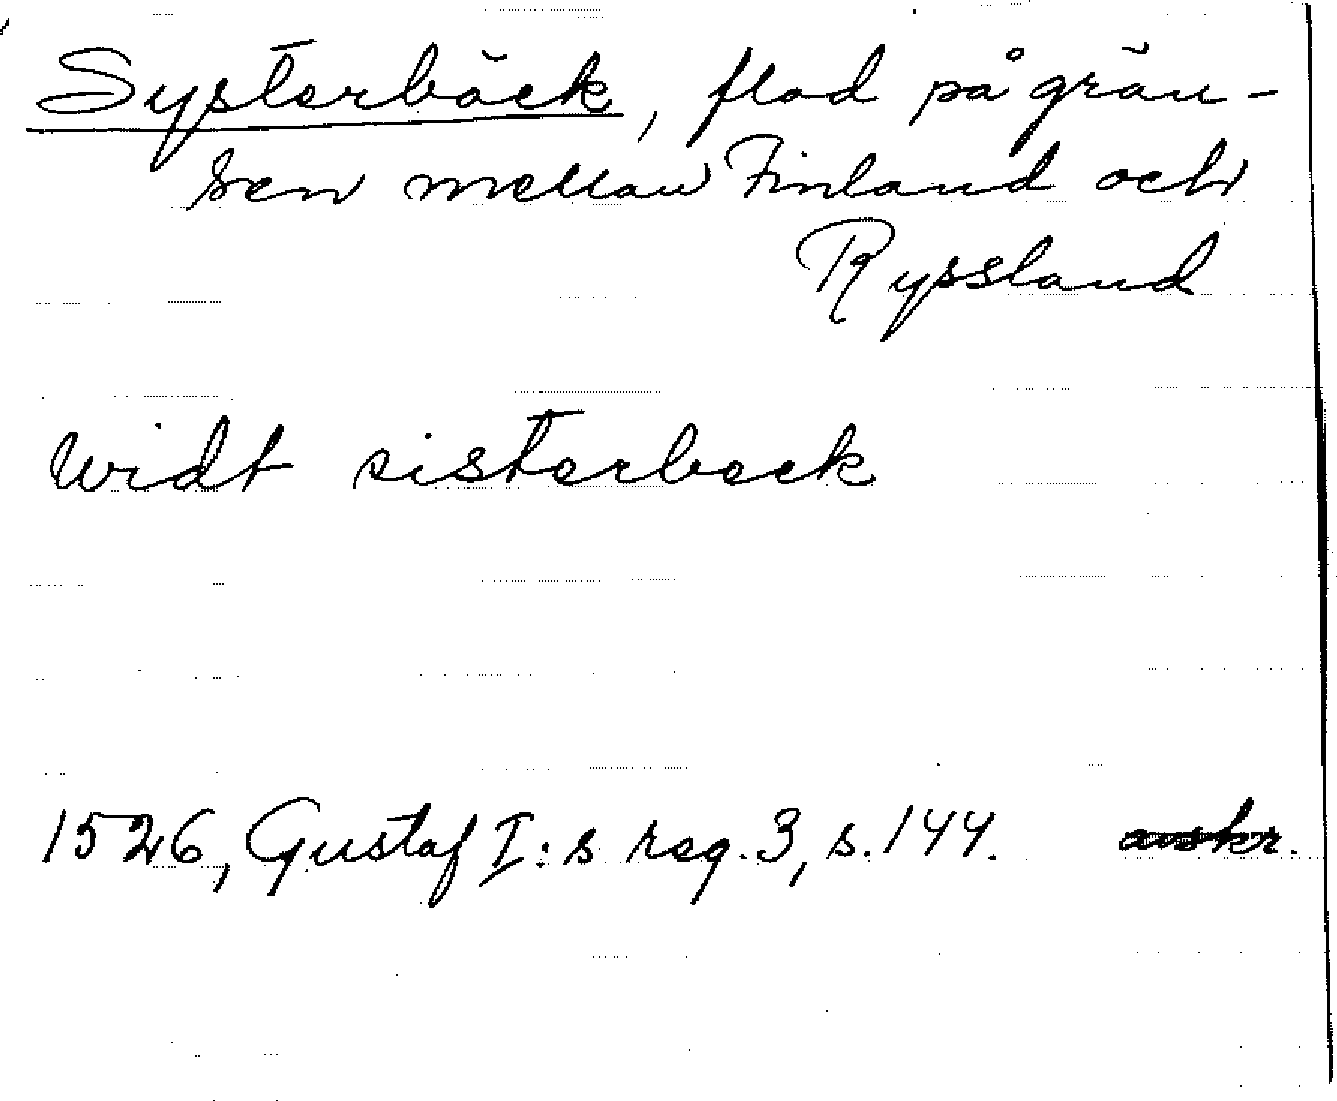 Systerbäck, flod på grän-
sen mellan Finland och
Ryssland
widt sisterbeck
1526, Gustaf I:s reg. 3, s. 144. avskr.